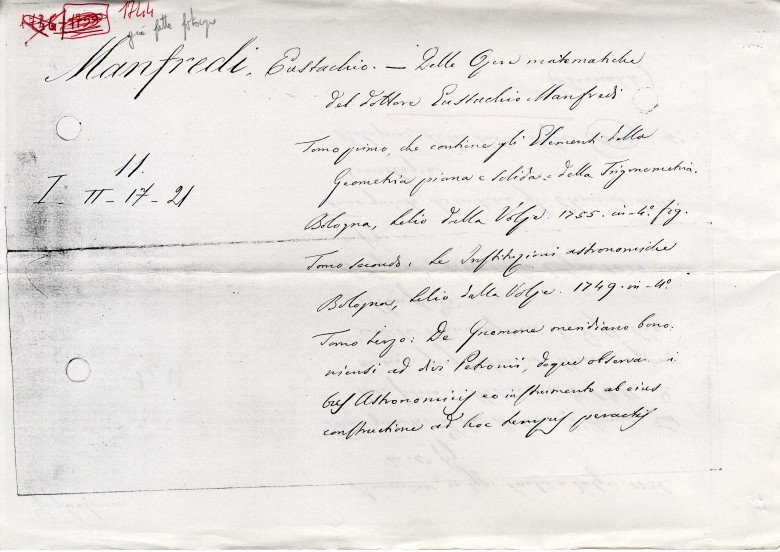 1744
già fatte fotocopie
Manfredi, Eustachio. — Delle Opere matematiche
del dottore Eustachio Manfredi
Tomo primo, che contiene gli Elementi della
Geometria piana e solida e della Trigonometria.
11.
I II-17-21
Bologna, Lelio dalla Volpe. 1755. in-4º. fig.
Tomo secondo: Le Instituzioni astronomiche
Bologna, Lelio dalla Volpe. 1749. in-4º
Tomo terzo: De Gnomone meridiano bono:
niensi ad divi Petronii, deque observa i
bus Astronomicis eo instrumento ab eius
constructione ad hoc tempus peractis